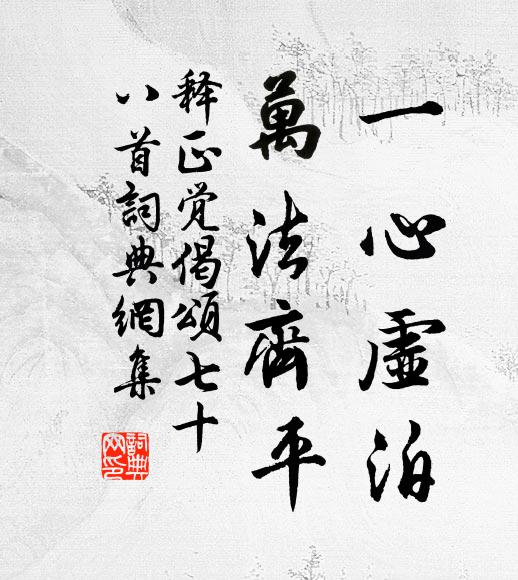 一心虛泊
萬法齊平
释正觉偈頌七十
八首詞典網集
詞典网印